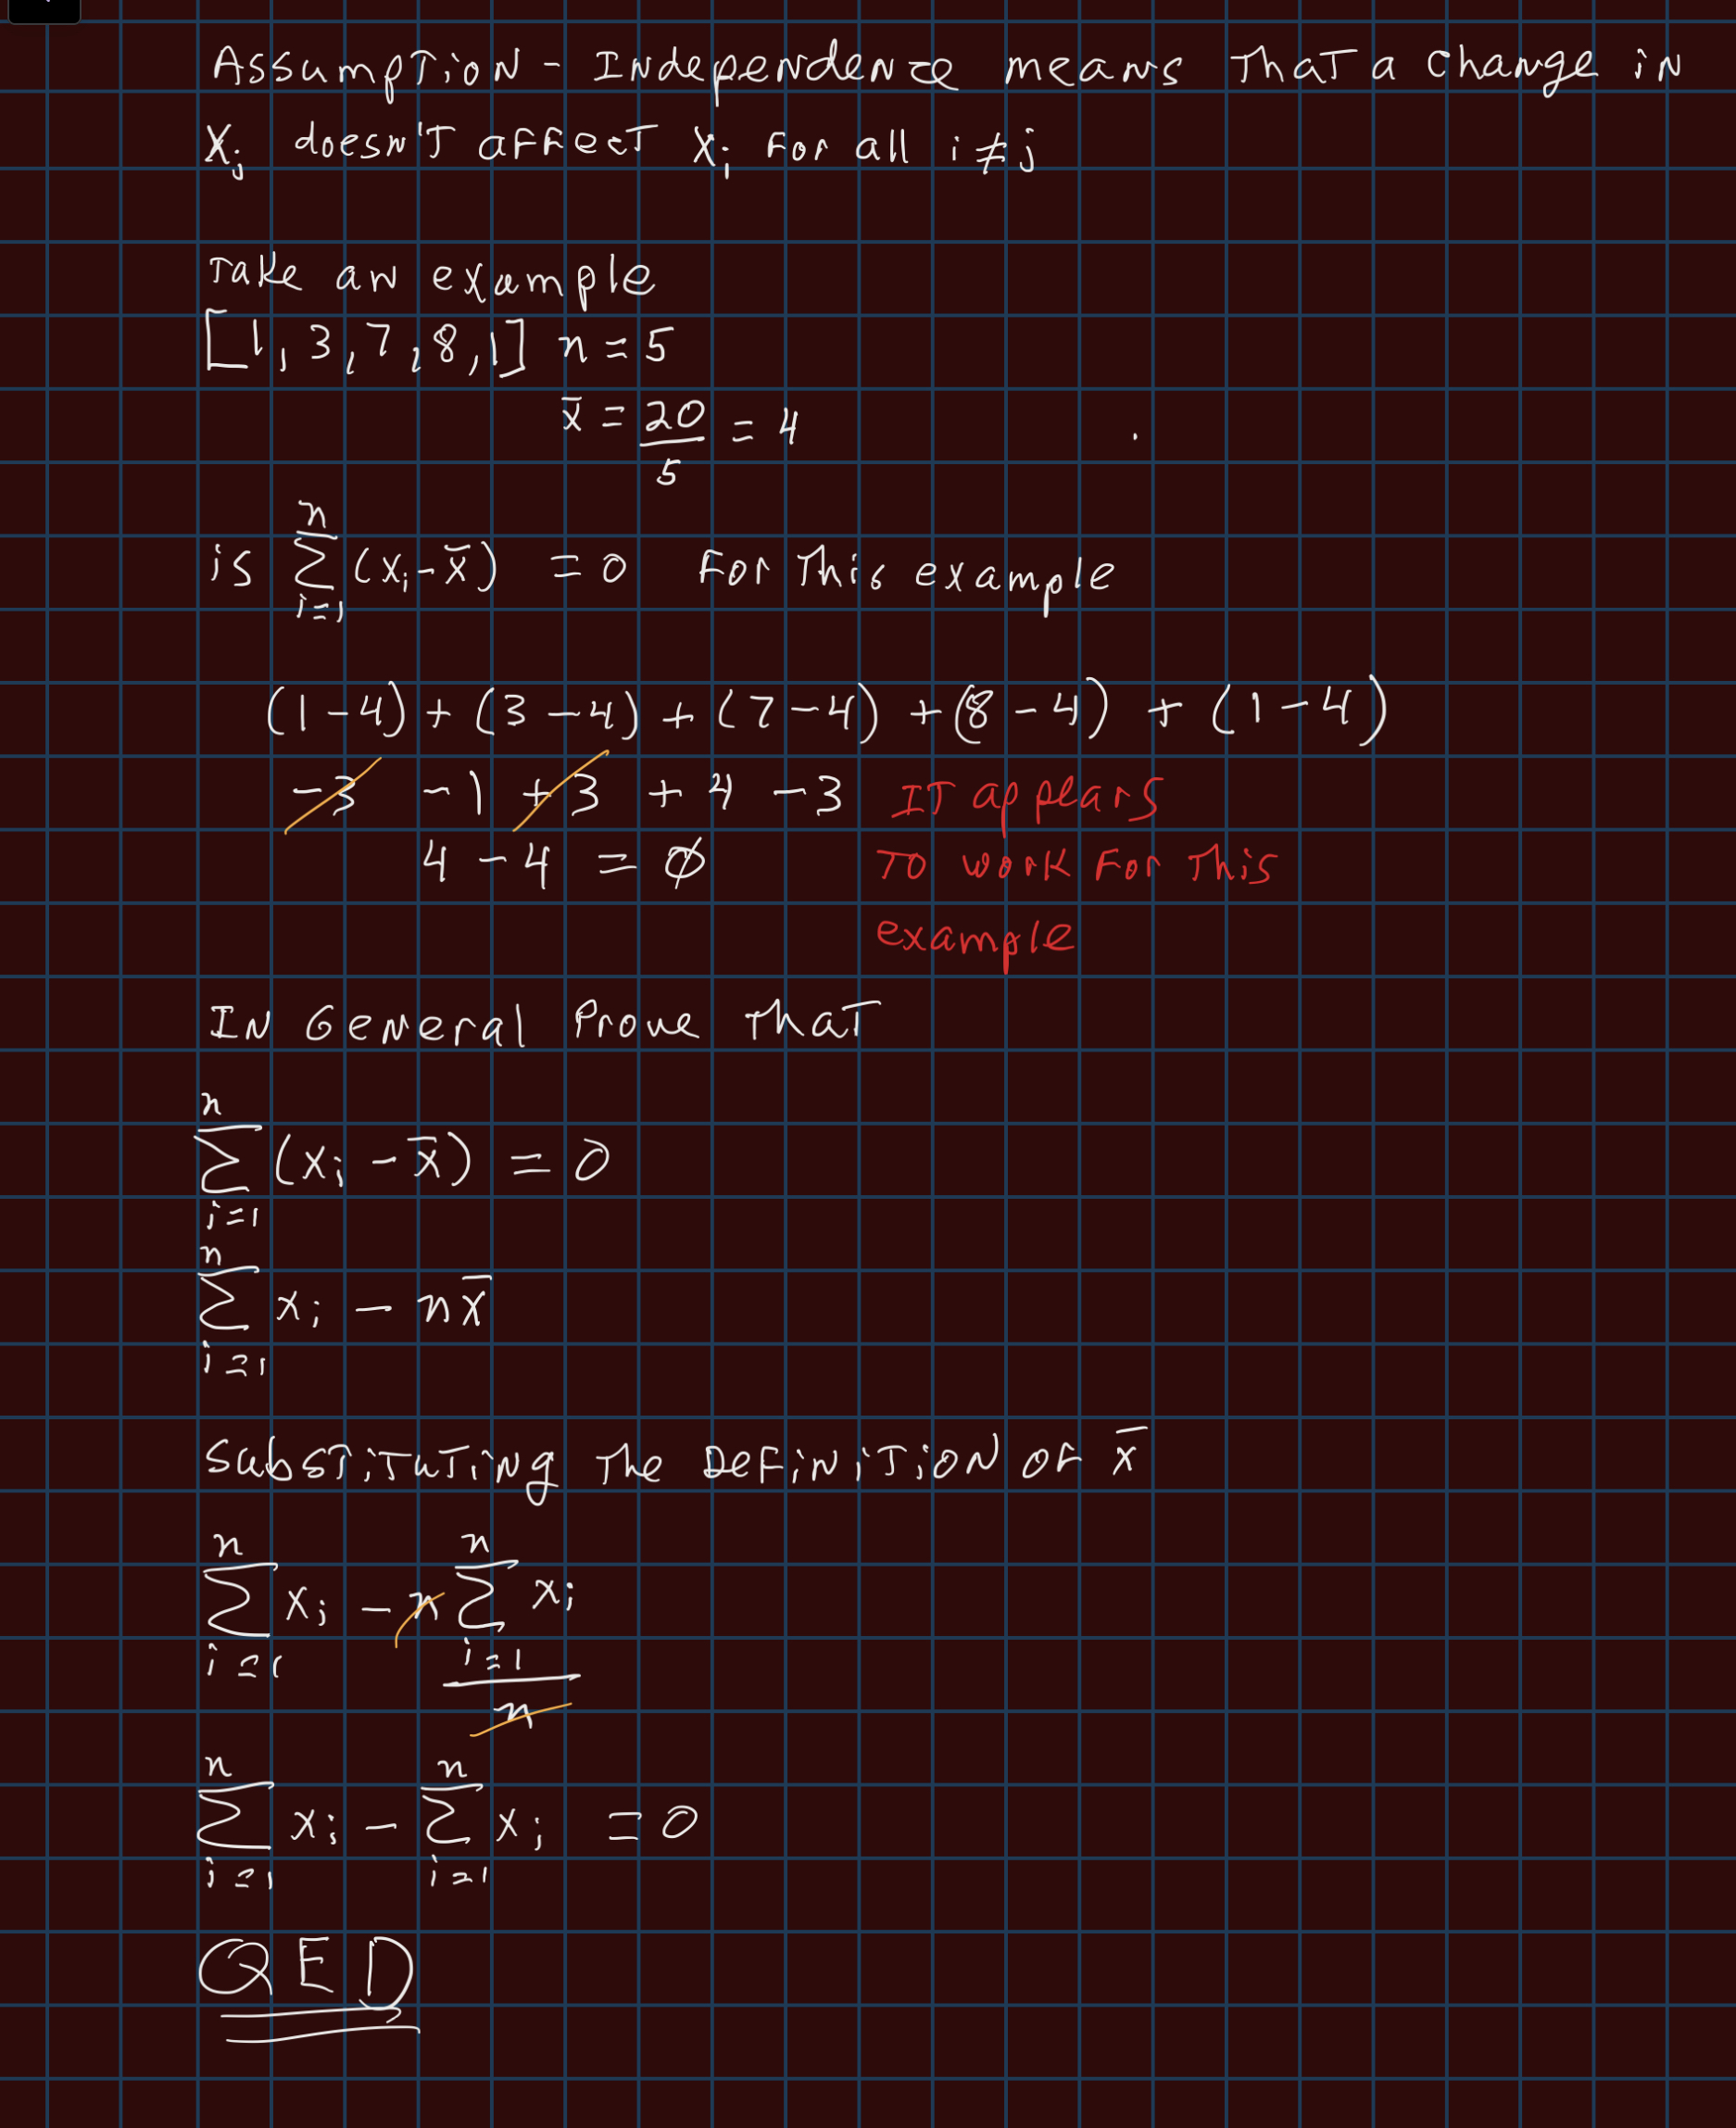 Assumption - Independence means that a change in
Xj doesn't affect Xi for all i ≠ j
Take an example
[1, 3, 7, 8, 1] n = 5
x̄ = 20/5 = 4
is ∑_{i=1}^{n} (xi - x̄) = 0 for this example
(1-4) + (3-4) + (7-4) + (8-4) + (1-4)
-3 -1 +3 +4 -3 It appears
4 - 4 = 0 to work for this
example
In General Prove that
∑_{i=1}^{n} (xi - x̄) = 0
∑_{i=1}^{n} xi - nx̄
Substituting the Definition of x̄
∑_{i=1}^{n} xi - n ∑_{i=1}^{n} xi / n
∑_{i=1}^{n} xi - ∑_{i=1}^{n} xi = 0
QED